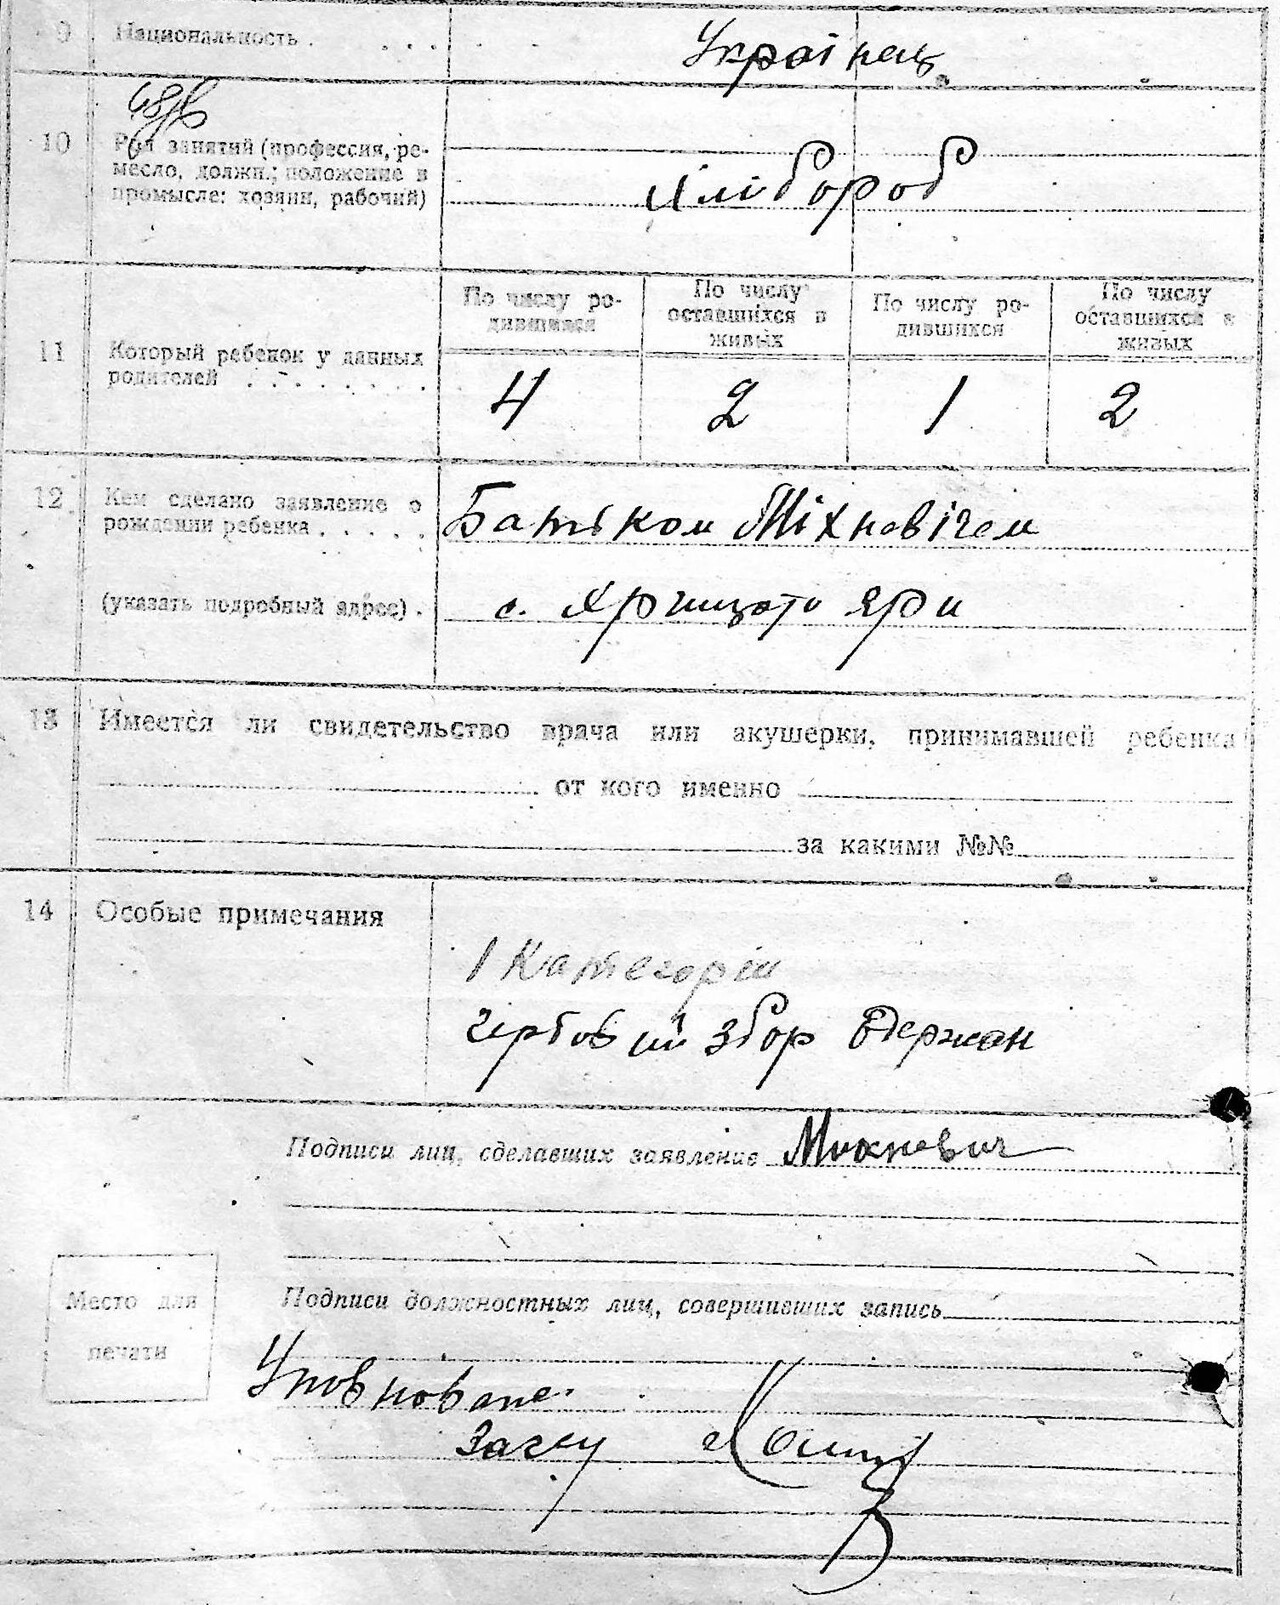 9 Национальность . . . . . Українец
10 Род занятий (профессия, ре-
месло, должн.; положение в
промысле: хозяин, рабочий)
Хлібороб
По числу ро-
дившихся
По числу
оставшихся в
живых
По числу ро-
дившихся
По числу
оставшихся в
живых
11 Который ребенок у данных
родителей . . . . . . . .
4 2 1 2
12 Кем сделано заявление о
рождении ребенка . . . . .
Батьком Міхневічем
(указать подробный адрес) .
с.
13 Имеется ли свидетельство врача или акушерки, принимавшей ребенка
от кого именно
за какими №№
14 Особые примечания
1 Категорія
Гербовий збор Одержан
Подписи лиц, сделавших заявление Михневич
Подписи должностных лиц, совершивших запись
Место для
печати
Уповноваже.
Загсу